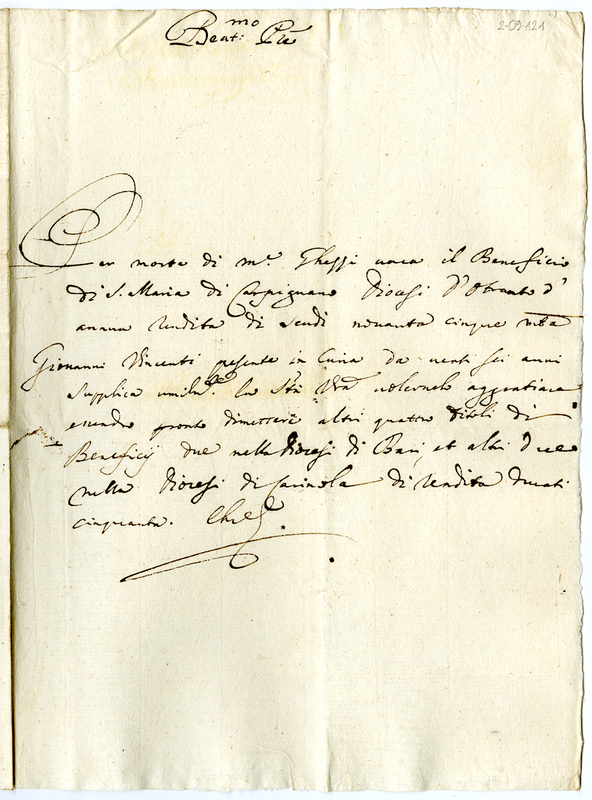 2-09-121
Beat:mo Pre
Per morte di m.r Ghezzi vaca il Beneficio
di S. Maria di Carpignano Diocesi d'Otranto d'
annua rendita di scudi novanta cinque
Giovanni Vincenti presente in Curia da venti sei anni
supplica umilm.te la S.tà V.ra volernelo aggratiare
essendo pronto dimettere altri quattro titoli di
Beneficij due nella Diocesi di Bari, et altri due
nella Diocesi di Carinola di rendita ducati
cinquanta. Che